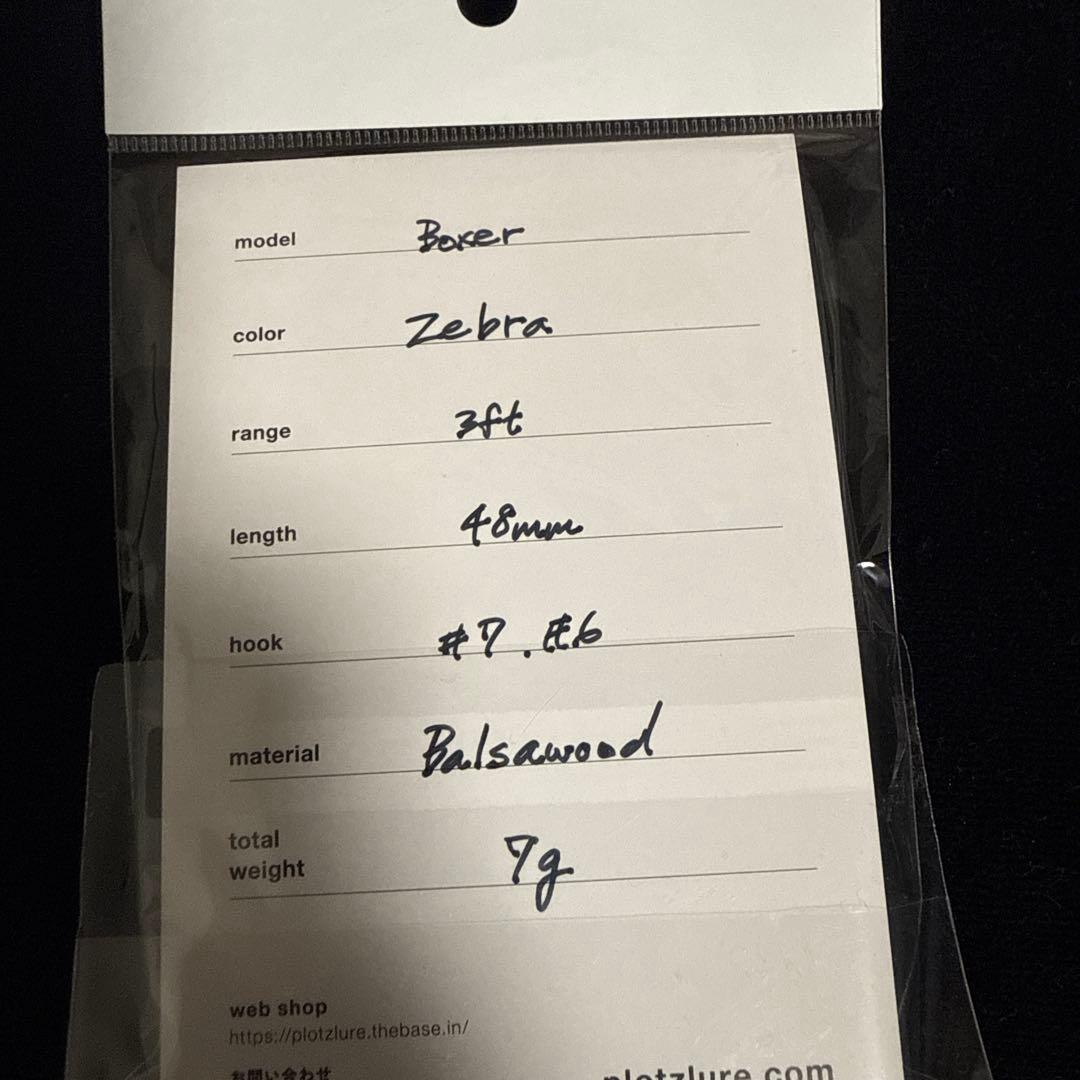 model Boxer
color Zebra
range 3ft
length 48mm
hook #7. #6
material Balsawood
total
weight 7g
web shop
https://plotzlure.thebase.in/
お問い合わせ
plotzlure.com